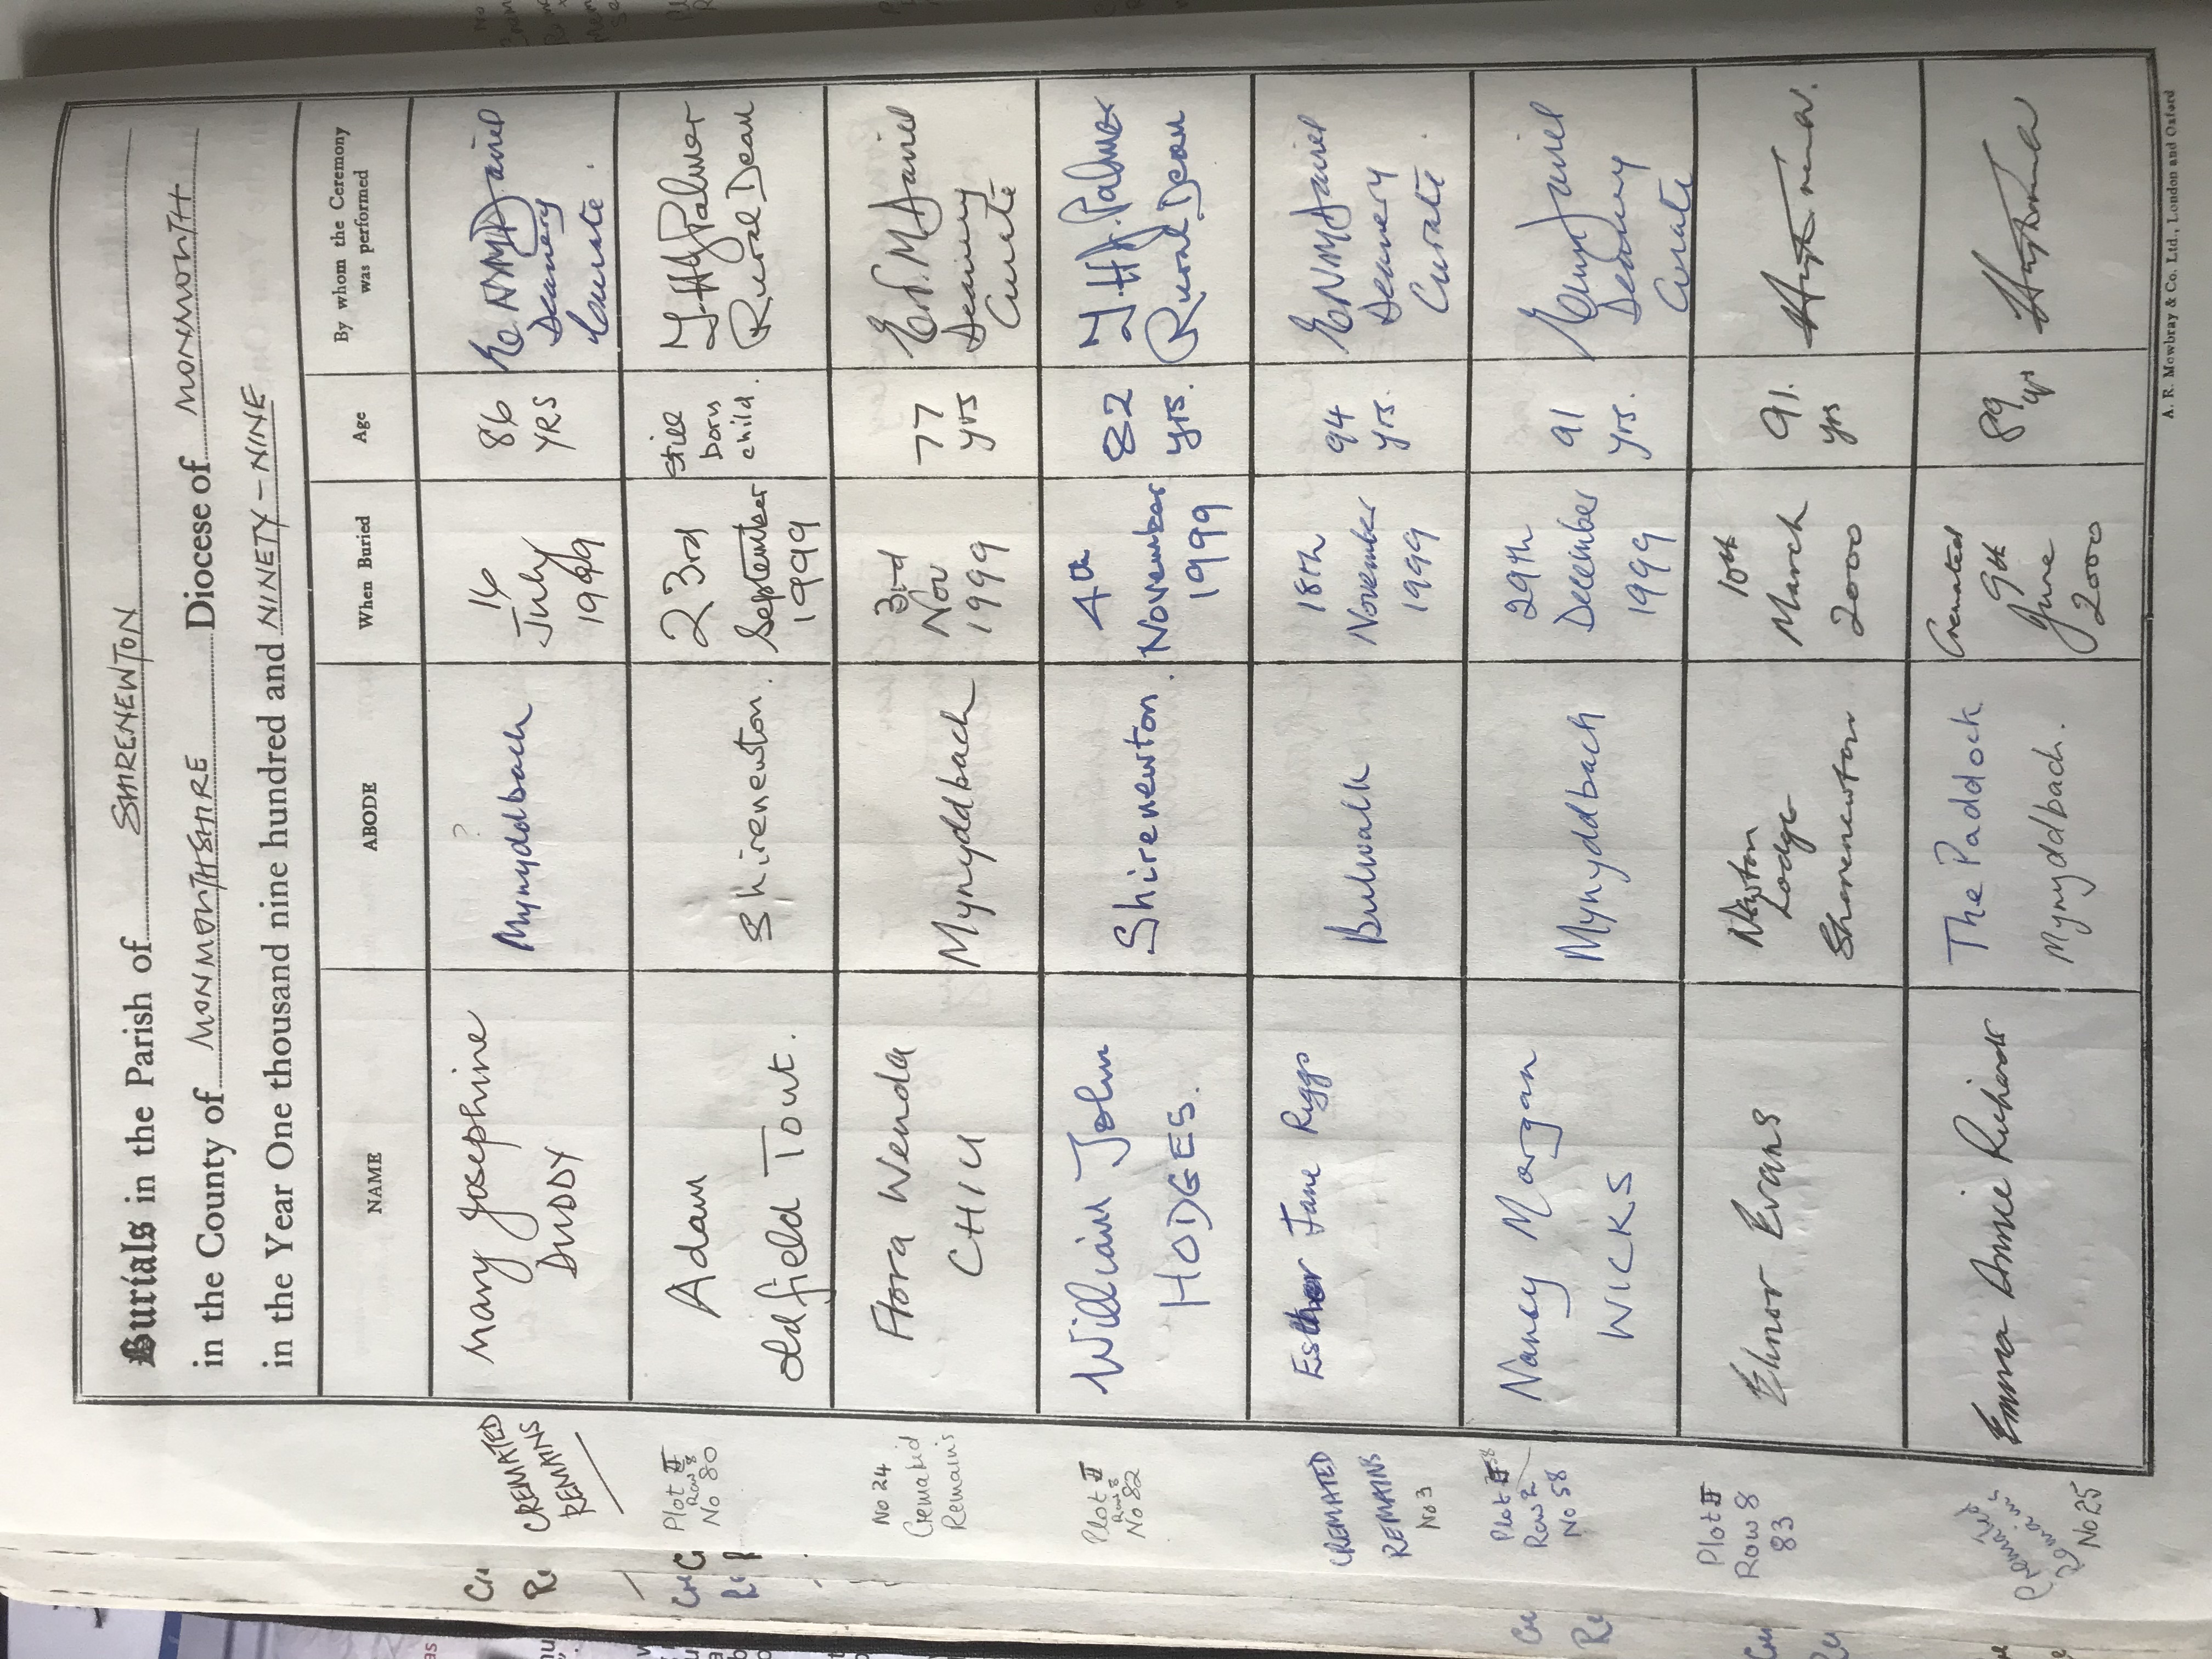 Burials in the Parish of SHIRENEWTON
in the County of MONMOUTHSHIRE Diocese of MONMOUTH
in the Year One thousand nine hundred and NINETY-NINE
NAME ABODE When Buried Age By whom the Ceremony was performed
CREMATED
REMAINS
Mary Josephine
DUDDY
?
Mynyddbach
16
July
1999
86
YRS
E.N.M Daniel
Deanery
Curate.
Plot II
Row 8
No 80
Adam
Oldfield Tout.
Shirenewton.
23rd
September
1999
Still
born
child.
J.H.J Palmer
Rural Dean
No 24
Cremated
Remains
Flora Wenda
CHICK
Mynyddbach
3rd
Nov
1999
77
yrs
E.N.M Daniel
Deanery
Curate
Plot II
Row 8
No 82
William John
HODGES.
Shirenewton.
4th
November
1999
82
yrs.
J.H.J. Palmer
Rural Dean
CREMATED
REMAINS
No 3
Esther Jane Riggs
Bulwark
18th
November
1999
94
yrs.
E.N.M Daniel
Deanery
Curate.
Plot II
Row 2
No 58
Nancy Morgan
WICKS
Mynyddbach
29th
December
1999
91
yrs.
Daniel
Deanery
Curate
Plot II
Row 8
83
Elinor Evans
Newton
Lodge
Shirenewton
10th
March
2000
91.
yrs
Cremated
Remains
No 25
Emma Annie Richards
The Paddock
Mynyddbach.
Cremated
9th
June
2000
89
yrs
A. R. Mowbray & Co. Ltd., London and Oxford